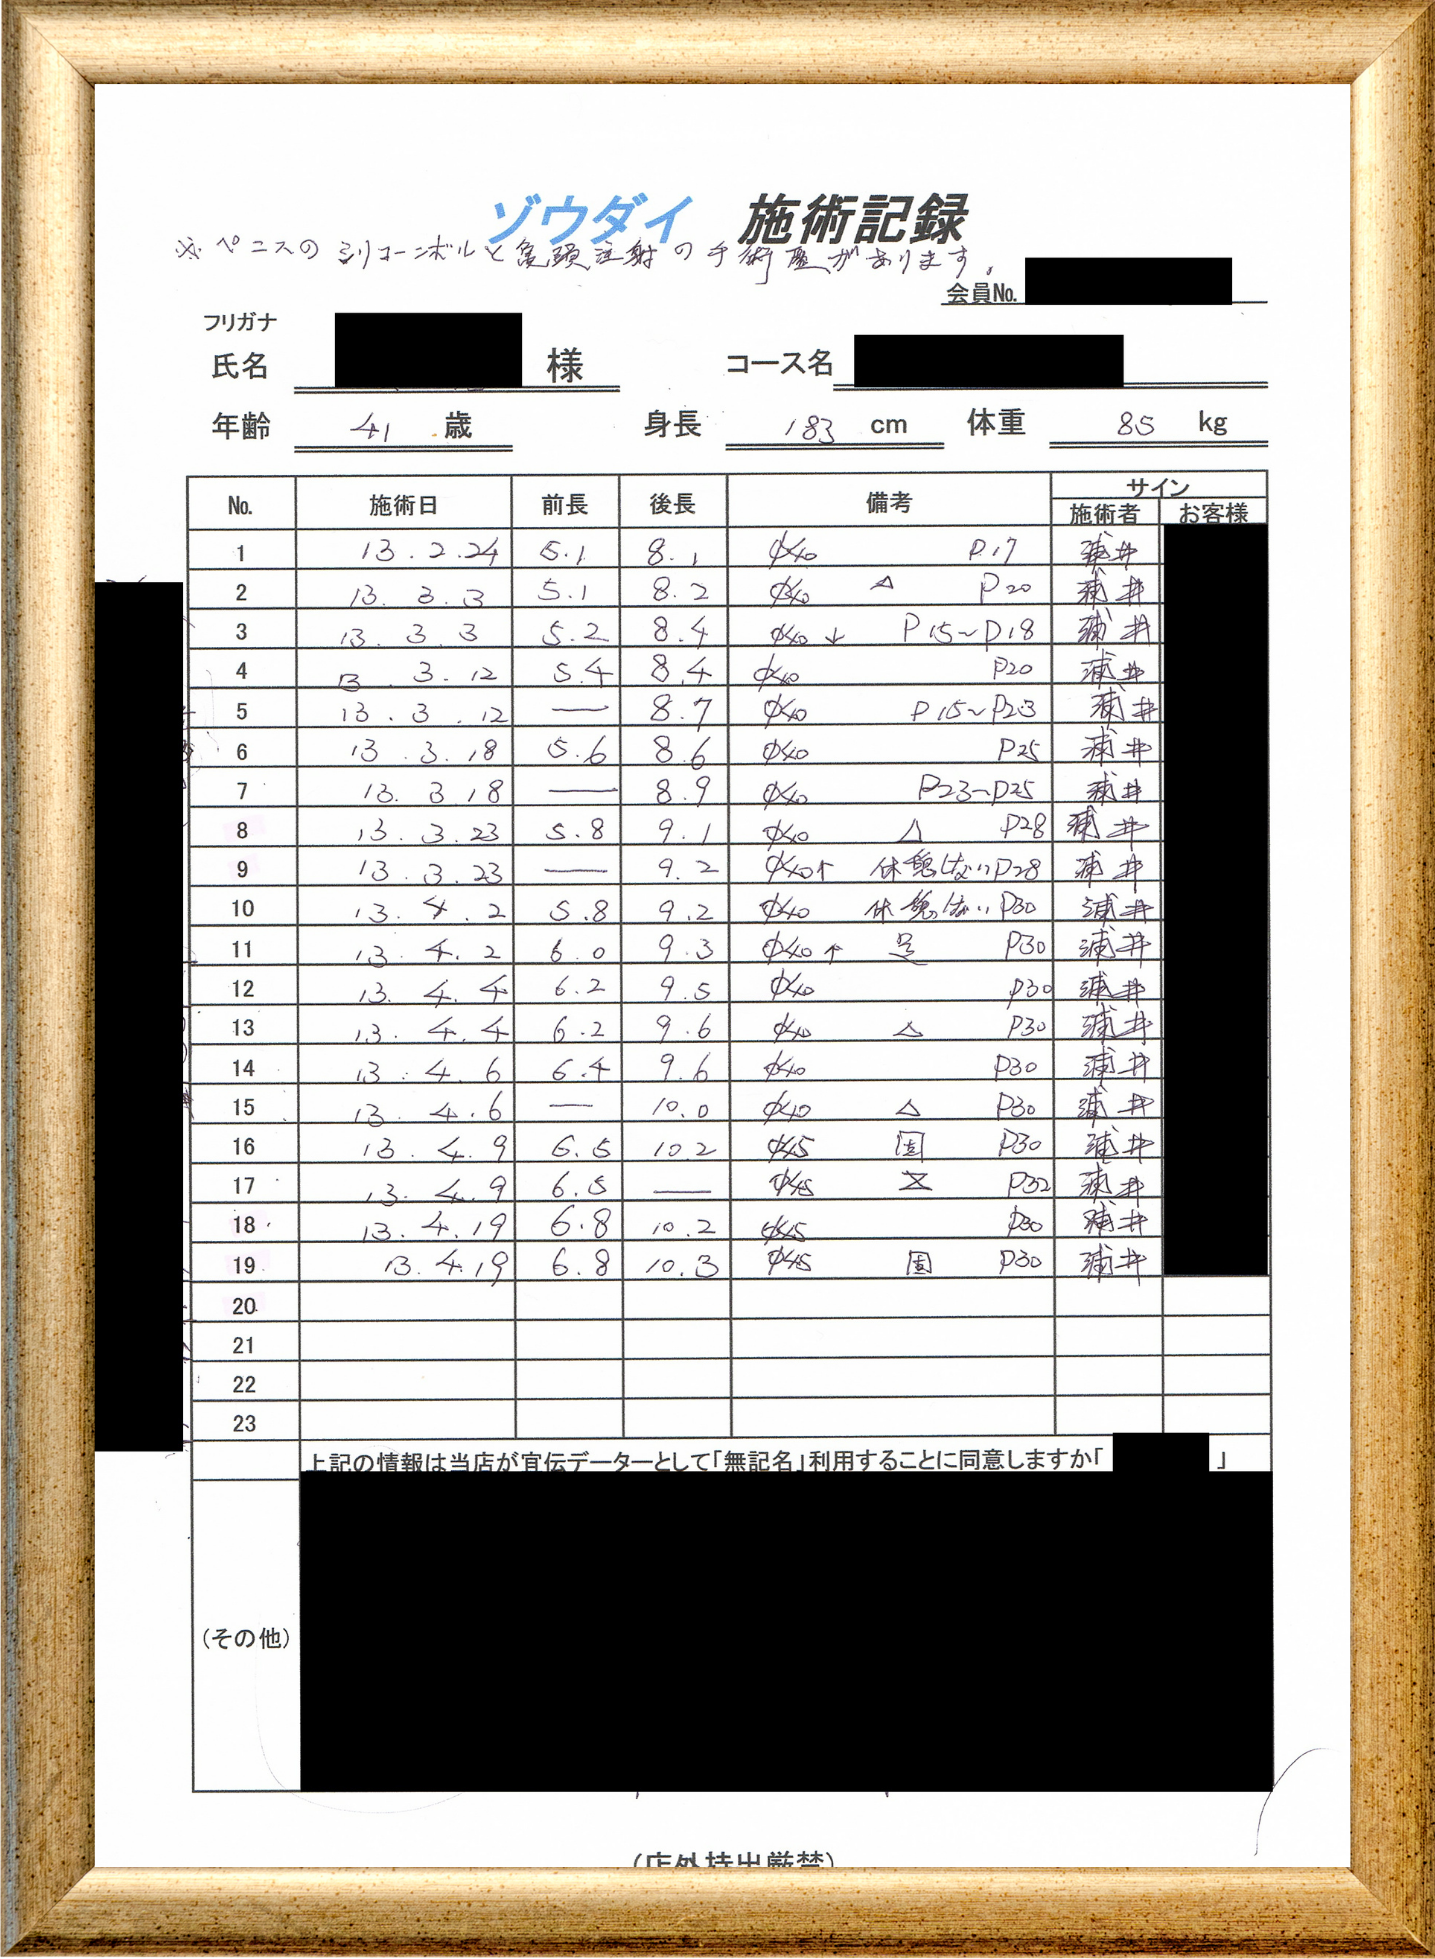 ゾウダイ 施術記録
※ ペニスの シリコーンボルと亀頭注射の手術歴があります。
会員No.
フリガナ
氏名 様 コース名
年齢 41 歳 身長 183 cm 体重 85 kg
No. 施術日 前長 後長 備考 サイン
施術者 お客様
1 13.2.24 5.1 8.1 φ40 P.17 浦井
2 13.3.3 5.1 8.2 φ40 △ P20 浦井
3 13.3.3 5.2 8.4 φ40↓ P15~P18 浦井
4 13.3.12 5.4 8.4 φ40 P20 浦井
5 13.3.12 — 8.7 φ40 P15~P23 浦井
6 13.3.18 5.6 8.6 φ40 P25 浦井
7 13.3.18 — 8.9 φ40 P23~P25 浦井
8 13.3.23 5.8 9.1 φ40 △ P28 浦井
9 13.3.23 — 9.2 φ40↑ 休憩はない P28 浦井
10 13.4.2 5.8 9.2 φ40 休憩はない P30 浦井
11 13.4.2 6.0 9.3 φ40↑ 足 P30 浦井
12 13.4.4 6.2 9.5 φ40 P30 浦井
13 13.4.4 6.2 9.6 φ40 △ P30 浦井
14 13.4.6 6.4 9.6 φ40 P30 浦井
15 13.4.6 — 10.0 φ40 △ P30 浦井
16 13.4.9 6.5 10.2 φ45 固 P30 浦井
17 13.4.9 6.5 — φ45 P32 浦井
18 13.4.19 6.8 10.2 φ45 P30 浦井
19 13.4.19 6.8 10.3 φ45 固 P30 浦井
20
21
22
23
上記の情報は当店が宜伝データーとして「無記名」利用することに同意しますか「 」
(その他)
(店外持出厳禁)